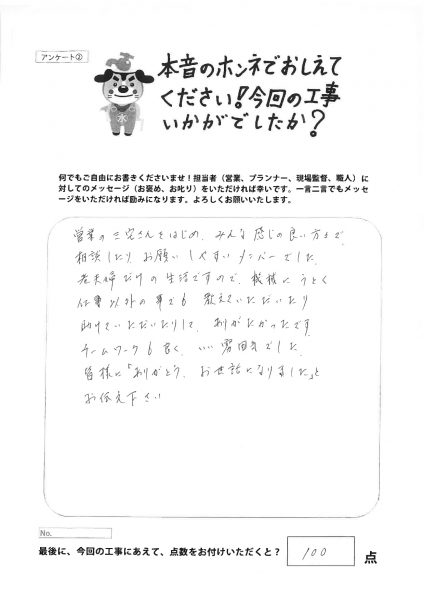 アンケート②
本音のホンネでおしえて
ください!今回の工事
いかがでしたか?
水
何でもご自由にお書きくださいませ!担当者(営業、プランナー、現場監督、職人)に
対してのメッセージ(お褒め、お叱り)をいただければ幸いです。一言二言でもメッセ
ージをいただければ励みになります。よろしくお願いいたします。
営業の三宅さんをはじめ、みんな感じの良い方々で、
相談したりお願いしやすいメンバーでした。
老夫婦だけの生活ですので、機械にうとく
仕事以外の事でも教えていただいたり
助けていただいたりして、ありがたかったです。
チームワークも良く、いい雰囲気でした。
皆様に「ありがとう、お世話になりました」と
お伝え下さい
No.
最後に、今回の工事にあえて、点数をお付けいただくと? 100 点